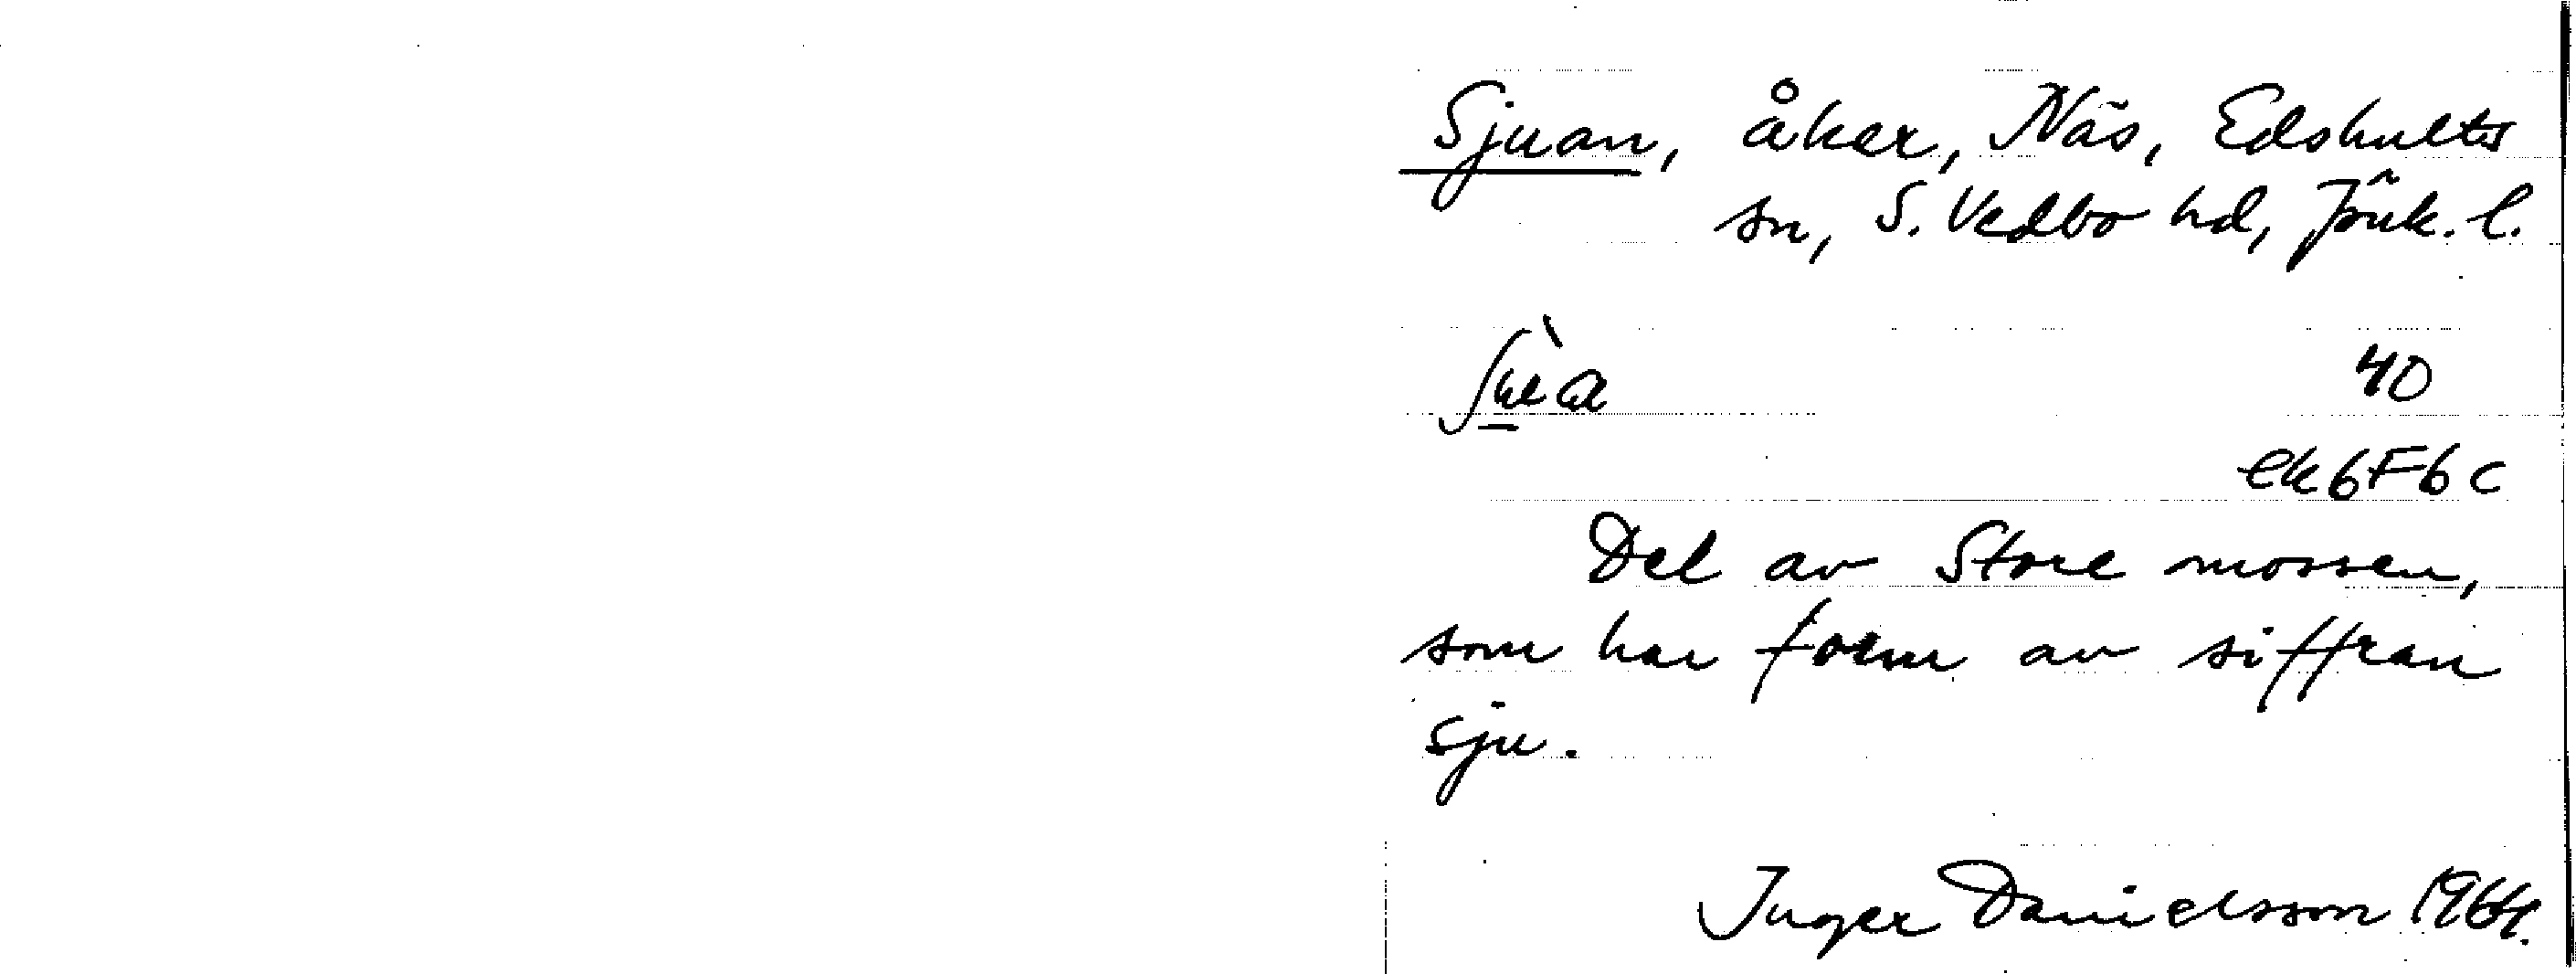 Sjuan, åker, Näs, Edshults
sn, S. Vedbo hd, Jönk. l.
40
ek6F6c
Del av Store mossen,
som har form av siffran
sju.
Inger Danielsson 1964.